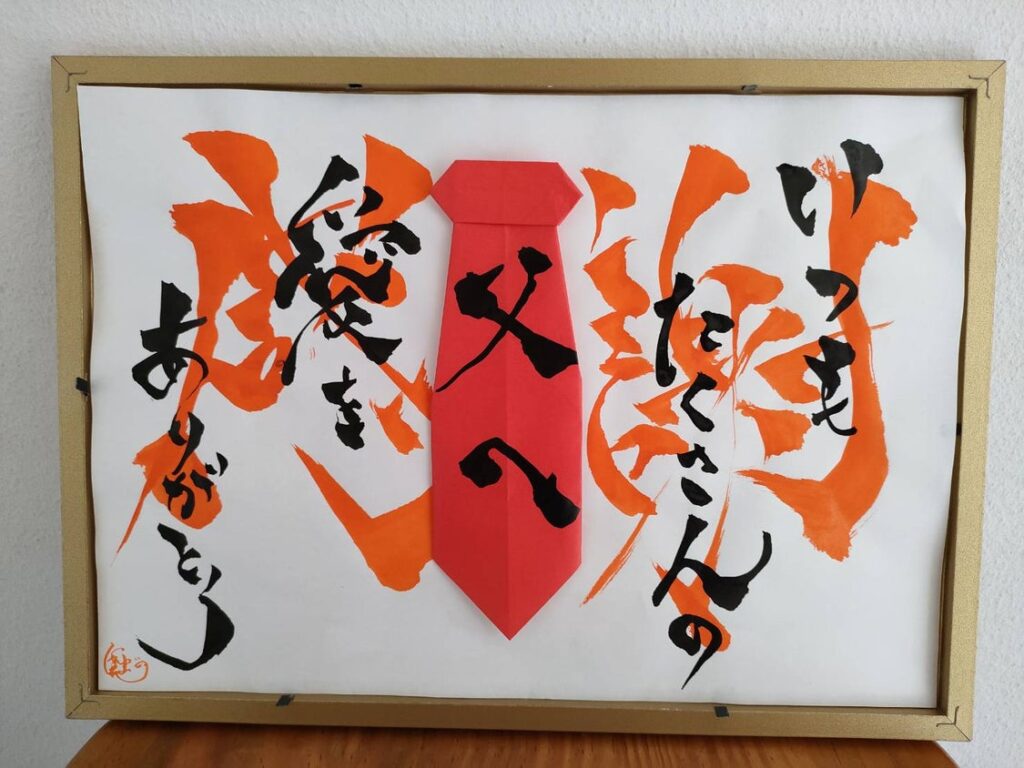 感謝
いつも
たくさんの
父へ
愛を
ありがとう